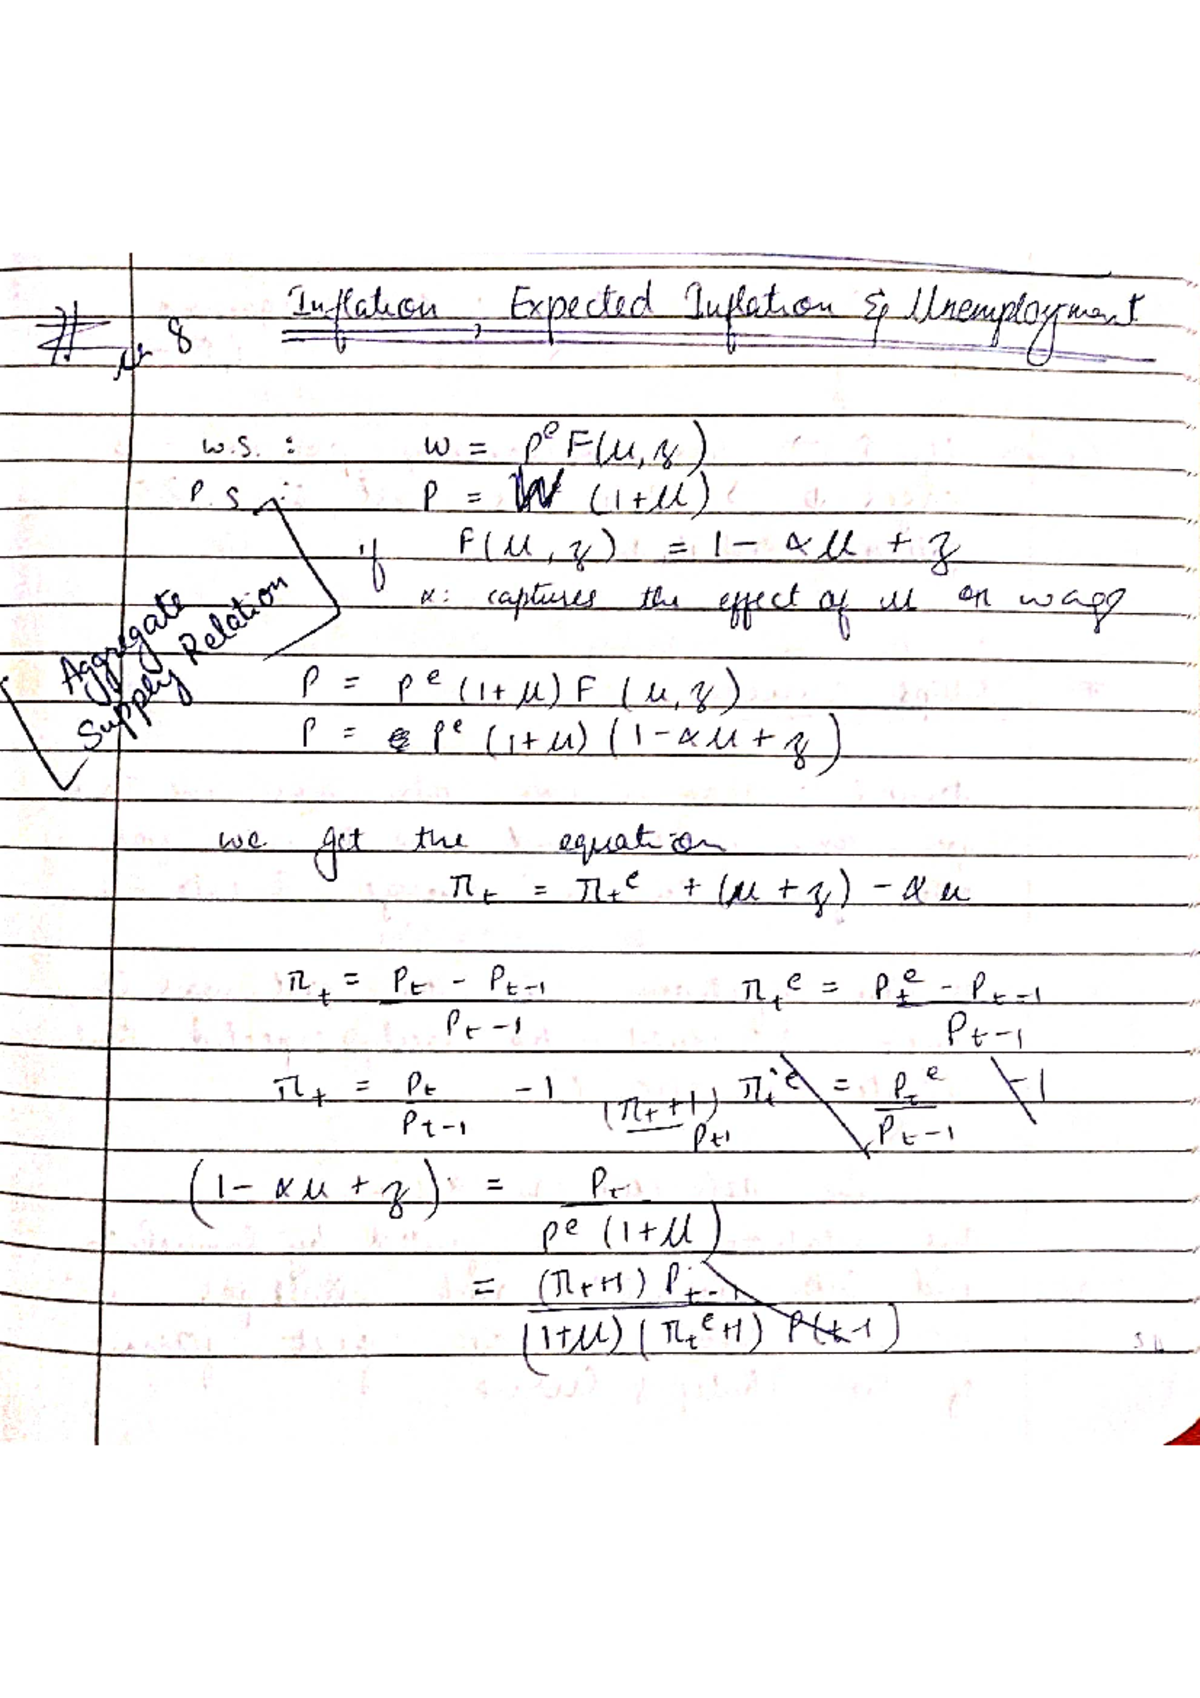 # 8 Inflation, Expected Inflation & Unemployment
W.S. : W = Pᵉ F(u, z)
P.S. : P = W (1+μ)
if F(u, z) = 1 - αu + z
α: captures the effect of u on wage
Aggregate Supply Relation
P = Pᵉ (1+μ) F (u, z)
P = Pᵉ (1+μ) (1-αu + z)
we get the equation
πt = πtᵉ + (μ + z) - αu
πt = Pt - Pt-1 / Pt-1 πtᵉ = Ptᵉ - Pt-1 / Pt-1
πt = Pt / Pt-1 - 1 (πt+1) Pt1 πtᵉ = Ptᵉ / Pt-1 - 1
(1- αu + z) = Pt / Pᵉ (1+μ)
= (πt+1) Pt-1 / (1+μ) (πtᵉ+1) P(t-1)